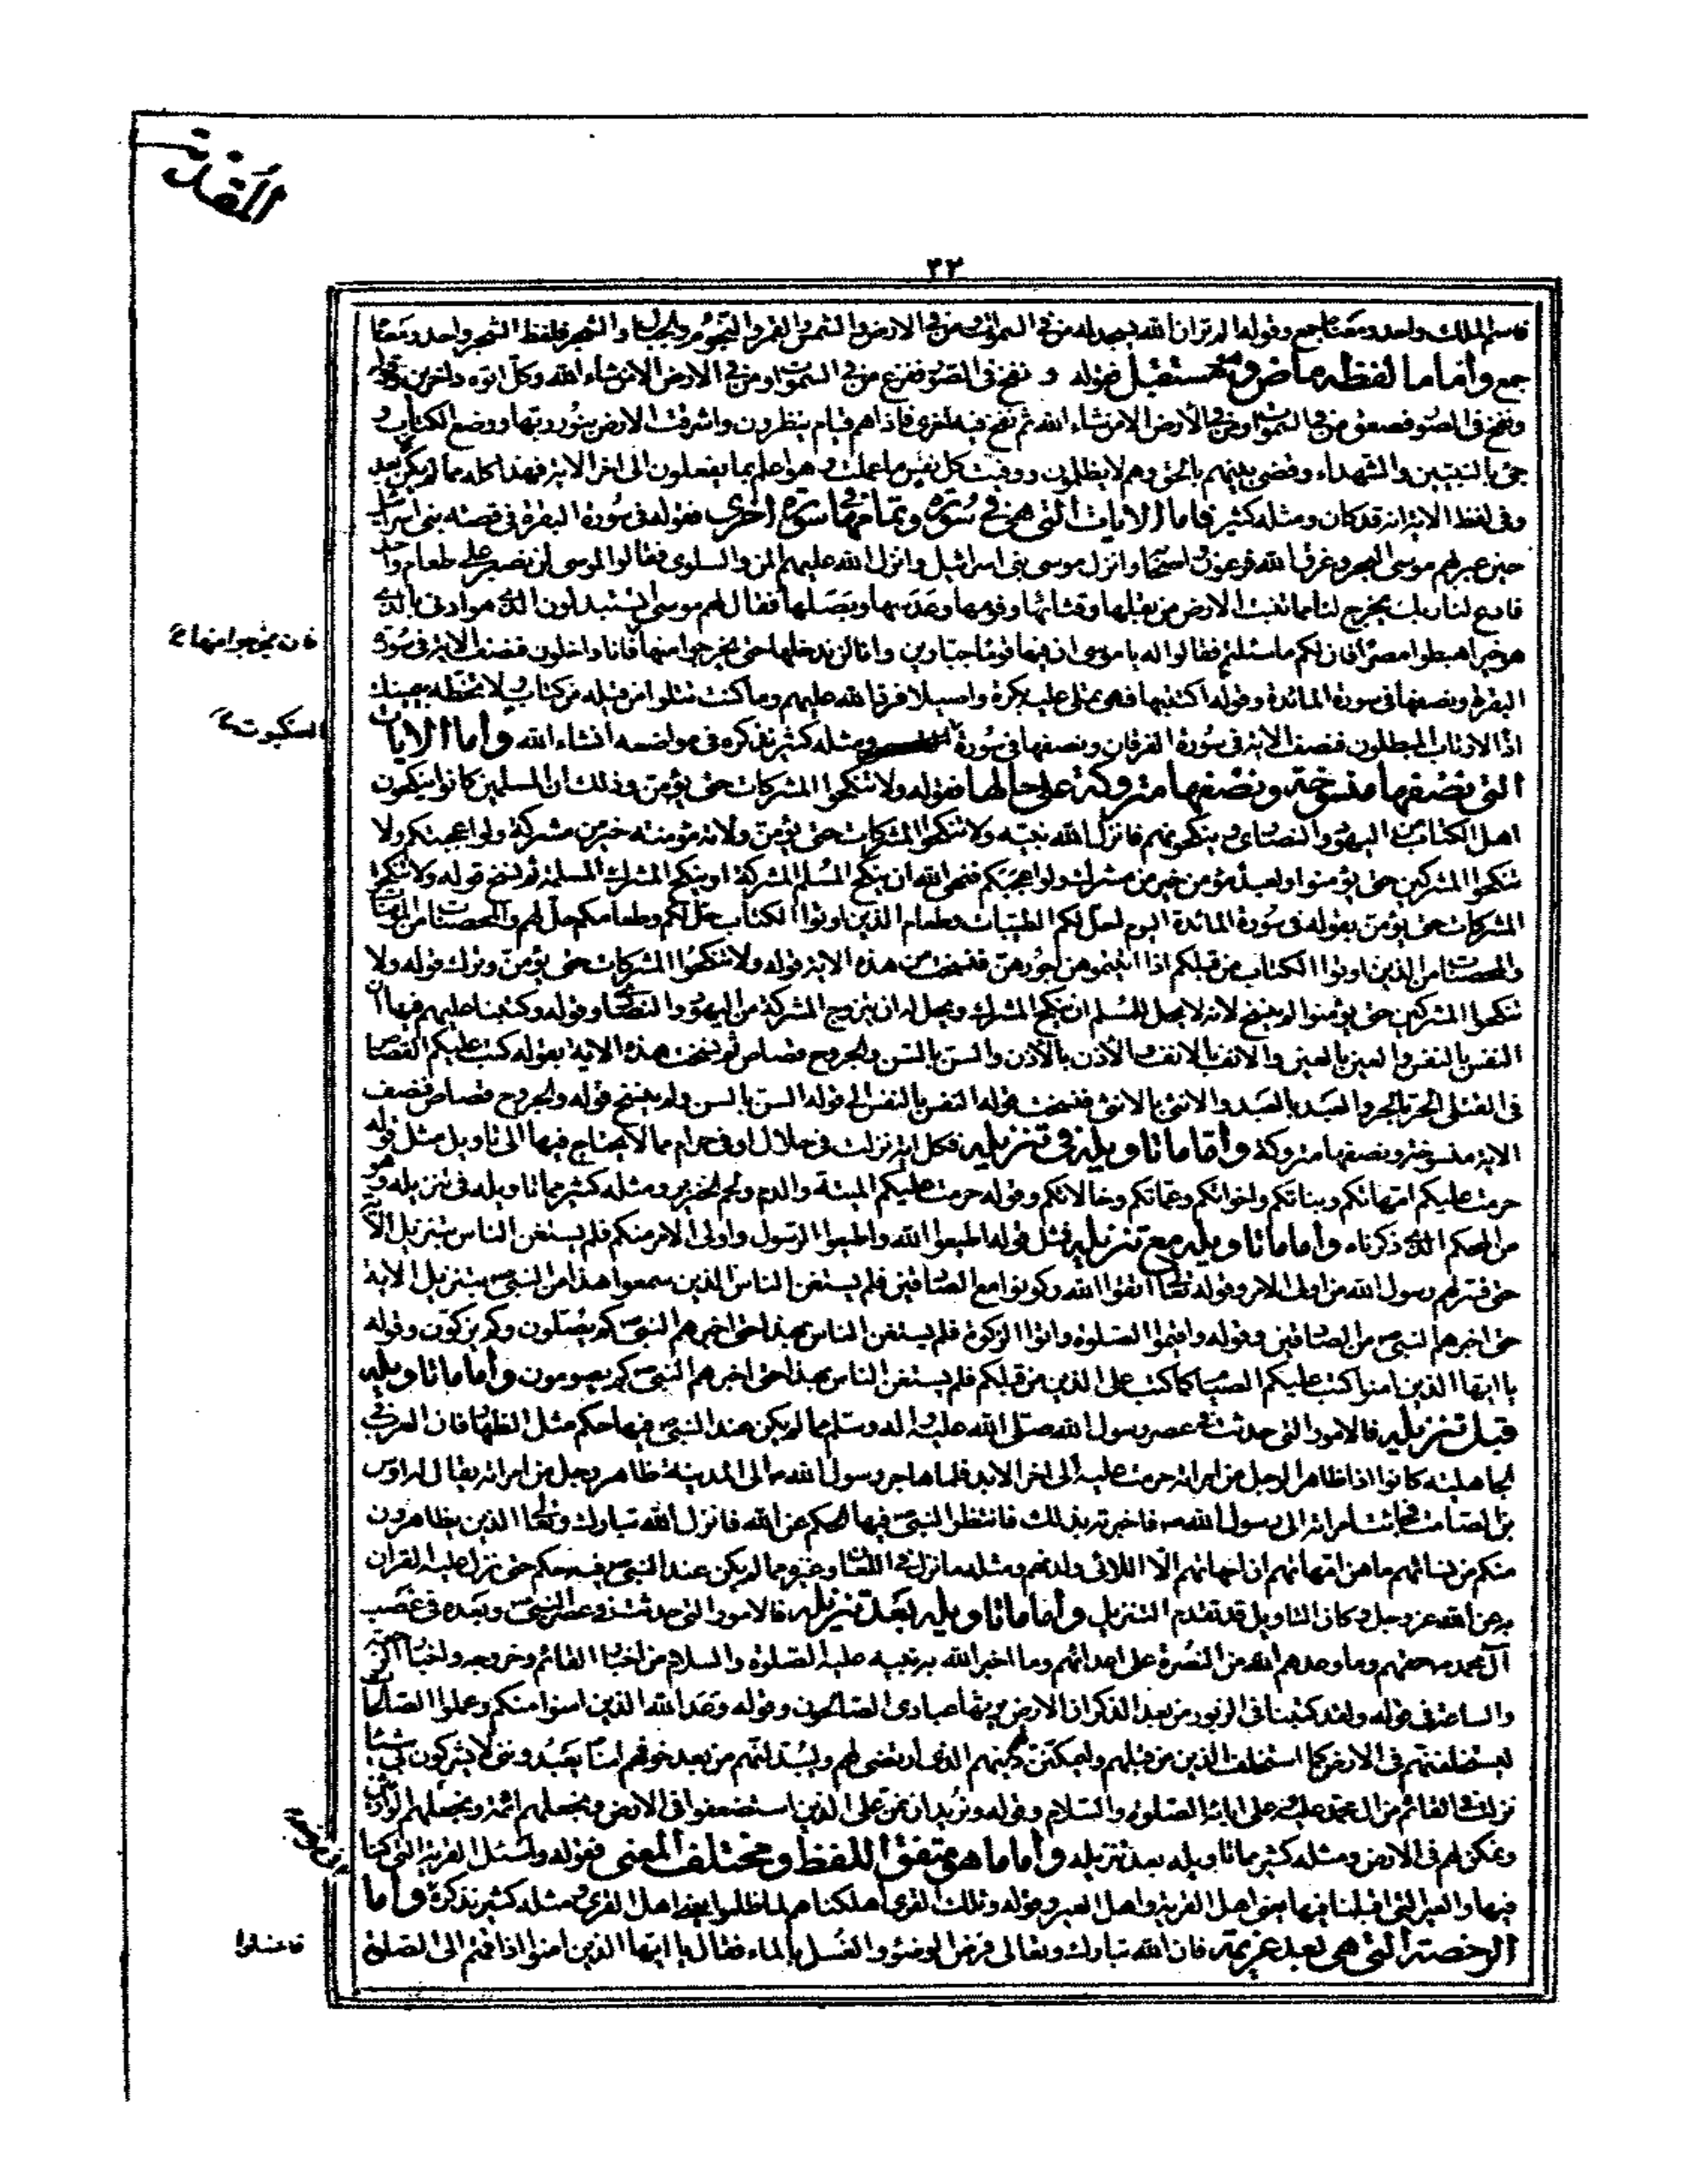 المقدمة
٣٢
فاسم الملك واحد ومعناه جمع وقوله الم تر ان الله يسجد له من في السموات ومن في الارض والشمس والقمر والنجوم والجبال والشجر فلفظ الشجر واحد ومعناه
جمع واما ما لفظه ماض ومستقبل فقوله و نفخ في الصور ففزع من في السموات ومن في الارض الا من شاء الله وكل اتوه داخرين وقوله
ونفخ في الصور فصعق من في السموات ومن في الارض الا من شاء الله ثم نفخ فيه اخرى فاذا هم قيام ينظرون واشرقت الارض بنور ربها ووضع الكتاب و
جئ بالنبيين والشهداء وقضى بينهم بالحق وهم لا يظلمون ووفيت كل نفس ما عملت وهو اعلم بما يفعلون الى اخر الاية فهذا كله ما لم يكن بعد
وفي لفظ الاية انه قد كان ومثله كثير فاما الايات التي هي في سورة وتمامها في سورة اخرى فقوله في سورة البقرة في قصة بني اسرائيل
حين عبر بهم موسى البحر وغرق الله فرعون واصحابه وانزل موسى بني اسرائيل وانزل الله عليهم المن والسلوى فقالوا لموسى لن نصبر على طعام واحد
فادع لنا ربك يخرج لنا مما تنبت الارض من بقلها وقثائها وفومها وعدسها وبصلها فقال لهم موسى اتستبدلون الذي هو ادنى بالذي
هو خير اهبطوا مصرا فان لكم ما سئلتم فقالوا له يا موسى ان فيها قوما جبارين وانا لن ندخلها حتى يخرجوا منها فانا داخلون فنصف الاية في سورة
فان يخرجوا منها
البقرة ونصفها في سورة المائدة وقوله اكتتبها فهي تملى عليه بكرة واصيلا فرد الله عليهم وما كنت تتلوا من قبله من كتاب ولا تخطه بيمينك
اذا لارتاب المبطلون فنصف الاية في سورة الفرقان ونصفها في سورة ومثله كثير نذكره في مواضعه انشاء الله واما الايات
العنكبوت
التي نصفها منسوخة ونصفها متروكة على حالها فقوله ولا تنكحوا المشركات حتى يؤمن وذلك ان المسلمين كانوا ينكحون
اهل الكتاب من اليهود والنصارى وينكحونهم فانزل الله نبيه ولا تنكحوا المشركات حتى يؤمن ولامة مؤمنة خير من مشركة ولو اعجبتكم ولا
تنكحوا المشركين حتى يؤمنوا ولعبد مؤمن خير من مشرك ولو اعجبكم فنهى الله ان ينكح المسلم المشركة او ينكح المشرك المسلمة ثم نسخ قوله ولا تنكحوا
المشركات حتى يؤمن بقوله في سورة المائدة اليوم احل لكم الطيبات وطعام الذين اوتوا الكتاب حل لكم وطعامكم حل لهم والمحصنات من المؤمنات
والمحصنات من الذين اوتوا الكتاب من قبلكم اذا اتيتموهن اجورهن فنسخت من هذه الاية قوله ولا تنكحوا المشركات حتى يؤمن وترك قوله ولا
تنكحوا المشركين حتى يؤمنوا لم ينسخ لانه لا يحل للمسلم ان ينكح المشرك ويحل له ان يتزوج المشركة من اليهود والنصارى وقوله وكتبنا عليهم فيها ان
النفس بالنفس والعين بالعين والانف بالانف والاذن بالاذن والسن بالسن والجروح قصاص ثم نسخت هذه الاية بقوله كتب عليكم القصاص
في القتلى الحر بالحر والعبد بالعبد والانثى بالانثى فنسخت قوله النفس بالنفس الى قوله السن بالسن ولم ينسخ قوله والجروح قصاص فنصف
الاية منسوخة ونصفها متروكة واما ما تاويله في تنزيله فكل اية نزلت في حلال او في حرام مما لا يحتاج فيها الى تاويل مثل قوله
حرمت عليكم امهاتكم وبناتكم واخواتكم وعماتكم وخالاتكم وقوله حرمت عليكم الميتة والدم ولحم الخنزير ومثله كثير مما تاويله في تنزيله وهو
من المحكم الذي ذكرناه واما ما تاويله مع تنزيله فمثل قوله اطيعوا الله واطيعوا الرسول واولى الامر منكم فلم يستغن الناس بتنزيل الاية
حتى فسر لهم رسول الله من اولى الامر وقوله تعالى اتقوا الله وكونوا مع الصادقين فلم يستغن الناس الذين سمعوا هذا من النبي ص بتنزيل الاية
حتى اخبرهم النبي ص من الصادقين وقوله واقيموا الصلوة واتوا الزكوة فلم يستغن الناس بهذا حتى اخبرهم النبي ص كم يصلون وكم يزكون وقوله
يا ايها الذين امنوا كتب عليكم الصيام كما كتب على الذين من قبلكم فلم يستغن الناس بهذا حتى اخبرهم النبي ص كم يصومون واما ما تاويله
قبل تنزيله فالامور التي حدثت في عصر رسول الله صلى الله عليه واله وسلم مما لم يكن عند النبي ص فيها حكم مثل الظهار فان العرب في
الجاهلية كانوا اذا ظاهر الرجل من امراته حرمت عليه الى اخر الابد فلما هاجر رسول الله ص الى المدينة ظاهر رجل من امراته يقال له اوس
بن الصامت فجائت امراته الى رسول الله ص فاخبرته بذلك فانتظر النبي ص فيها الحكم عن الله فانزل الله تبارك وتعالى الذين يظاهرون
منكم من نسائهم ما هن امهاتهم ان امهاتهم الا اللائي ولدنهم ومثله ما نزل في اللعان وغيره مما لم يكن عند النبي ص فيه حكم حتى نزل عليه القران
به عن الله عز وجل وكان التاويل قد تقدم التنزيل واما ما تاويله بعد تنزيله فالامور التي حدثت في عصر النبي ص وبعده في غصب
آل محمد حقهم وما وعدهم الله من النصرة على اعدائهم وما اخبر الله به نبيه عليه الصلوة والسلام من اخبار القائم وخروجه واخبار الرجعة
والساعة في قوله ولقد كتبنا في الزبور من بعد الذكر ان الارض يرثها عبادى الصالحون وقوله وعد الله الذين امنوا منكم وعملوا الصالحات
ليستخلفنهم في الارض كما استخلف الذين من قبلهم وليمكنن لهم دينهم الذي ارتضى لهم وليبدلنهم من بعد خوفهم امنا يعبدونني لا يشركون بي شيئا
نزلت في القائم من آل محمد عليه وعلى ابائه الصلوة والسلام وقوله ونريد ان نمن على الذين استضعفوا في الارض ونجعلهم ائمة ونجعلهم الوارثين
ونمكن لهم في الارض ومثله كثير مما تاويله بعد تنزيله واما ما هو متفق اللفظ ومختلف المعنى فقوله واسئل القرية التي كنا
فيها والعير التي اقبلنا فيها يعنى اهل القرية واهل العير وقوله وتلك القرى اهلكناهم لما ظلموا يعنى اهل القرى ومثله كثير نذكره واما
الرخصة التي هي بعد عزيمة فان الله تبارك وتعالى فرض الوضوء والغسل بالماء فقال يا ايها الذين امنوا اذا قمتم الى الصلوة
فاغسلوا